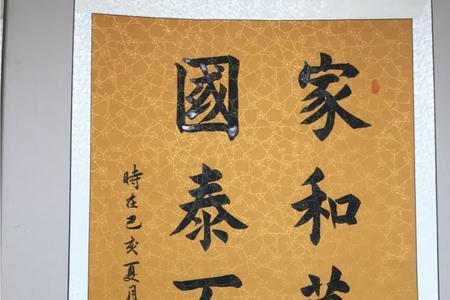 家和萬
國泰
時在己亥夏月